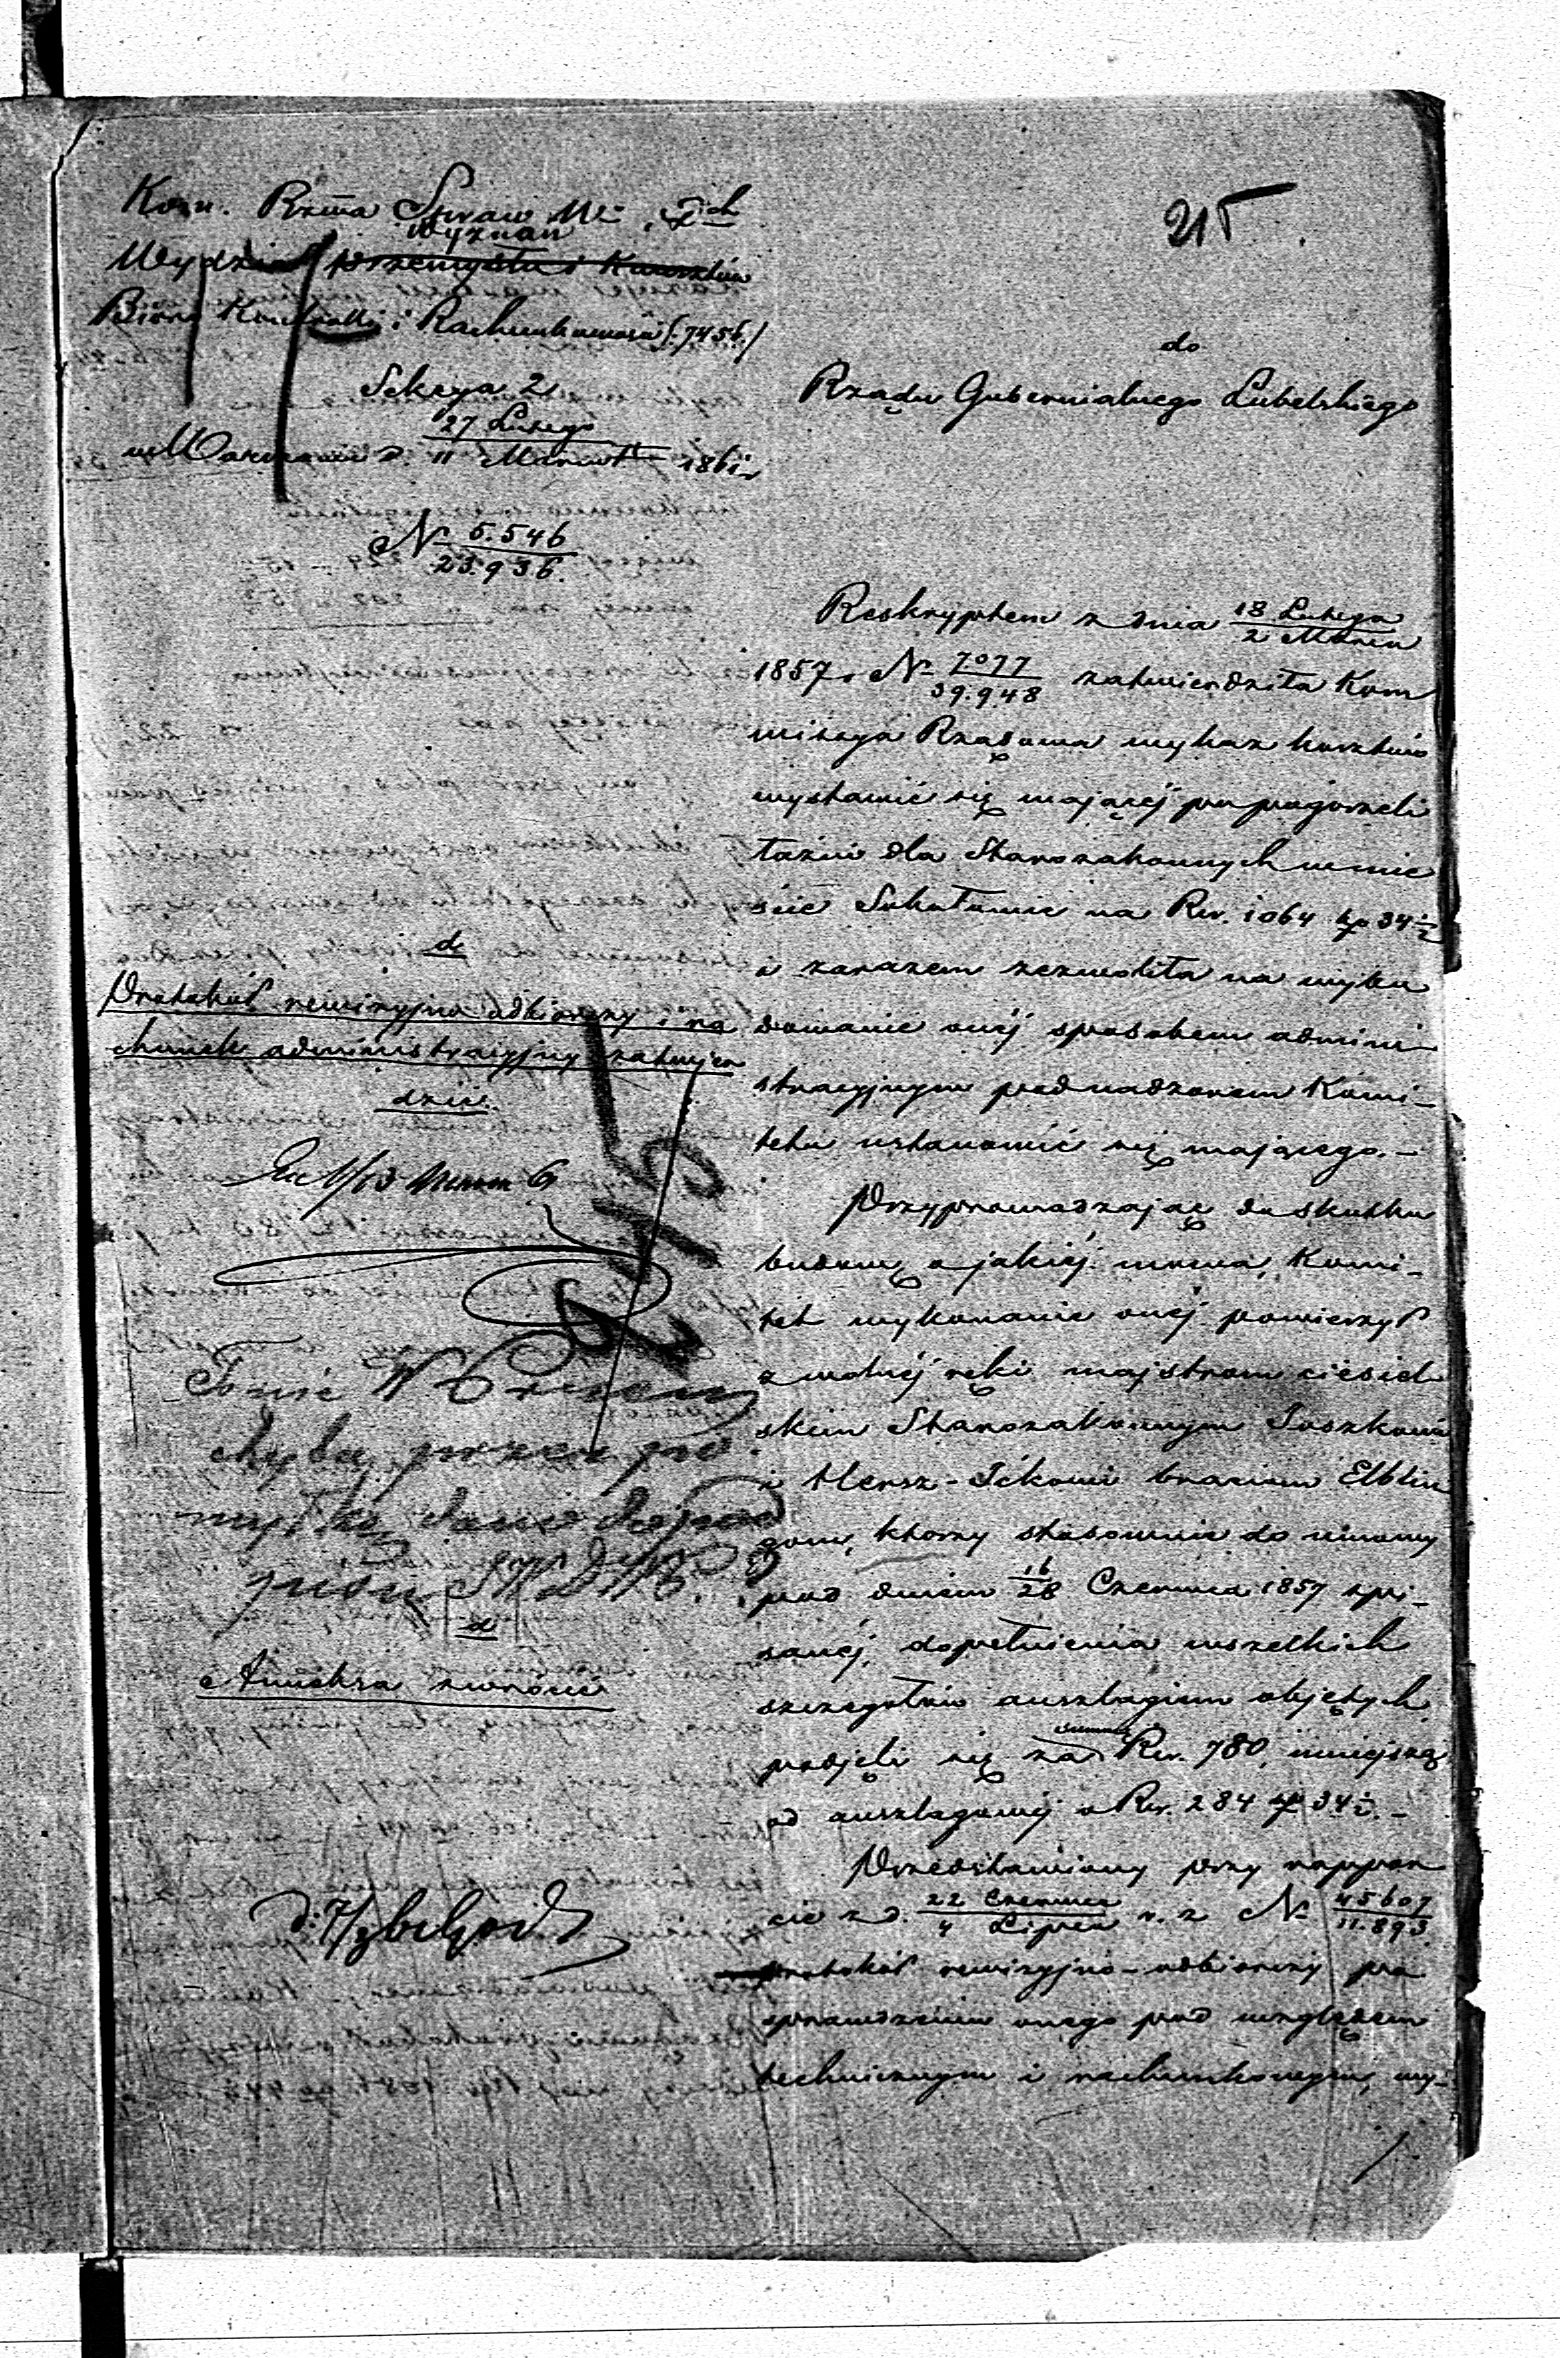 215
Kom. Rzwa Spraw We
Wyznań
Wydział przemysłu i Kunsztów
Biuro Kontrolli i Rachunkowości (:7456:)
Sekcya 2
27 Lutego
w Warszawie d. 11 Marca 1861 r
N 5.546
23.936.
do
Protokół rewizyjno odbiorczy i ra
chunek administracyjny zatwier
dzić.
d
Anschla zwrócić
do
Rządu Gubernialnego Lubelskiego
Reskryptem z dnia 18 Lutego
2 Marca
1857 r N 7077
39.948 zatwierdziła Kom
missya Rządowa wykaz kosztów
wystawić się mającéj po pogorzeli
łaźni dla Starozakonnych w mie
ście Sokołowie na Rsr. 1064 kp 34 1/2
i zarazem zezwoliła na wybu
dowanie onéj sposobem admini-
stracyjnym pod nadzorem Komi-
tetu ustanowić się mającego.-
Przyprowadzając do skutku
budowę o jakiéj mowa, Komi-
tet wykonanie onéj powierzył
z wolnéj ręki majstrom ciesiel
skim Starozakonnym Joszkowi
i Hersz-Ickowi braciom Elblin
gom, którzy stosownie do umowy
pod dniem 16/28 Czerwca 1857 spi-
sanéj, dopełnienia wszelkich
szczegółów anszlagiem objętych
podjęli się za summę Rsr. 780, mniejszą
od anszlagowéj o Rsr. 284 kp 34 1/2.-
Przedstawiony przy rappor
cie z d. 22 Czerwca
4 Lipca r. z N 45607
11.893
protokół rewizyjno-odbiorczy po
sprawdzeniu onego pod względem
technicznym i rachunkowym, wy-